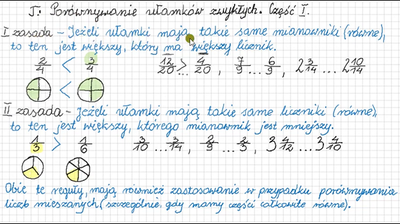 T: Porównywanie ułamków zwykłych. Część I.
I zasada - Jeżeli ułamki mają takie same mianowniki (równe),
to ten jest większy, który ma większy licznik.
2/4 < 3/4 12/20 > 4/20, 7/9 ... 6/9, 2 3/14 ... 2 10/14
II zasada - Jeżeli ułamki mają takie same liczniki (równe),
to ten jest większy, którego mianownik jest mniejszy.
1/3 > 1/6 3/10 ... 3/14, 3 4/12 ... 3 4/10
Obie te reguły mają również zastosowanie w przypadku porównywania
liczb mieszanych (szczególnie gdy mamy części całkowite równe).